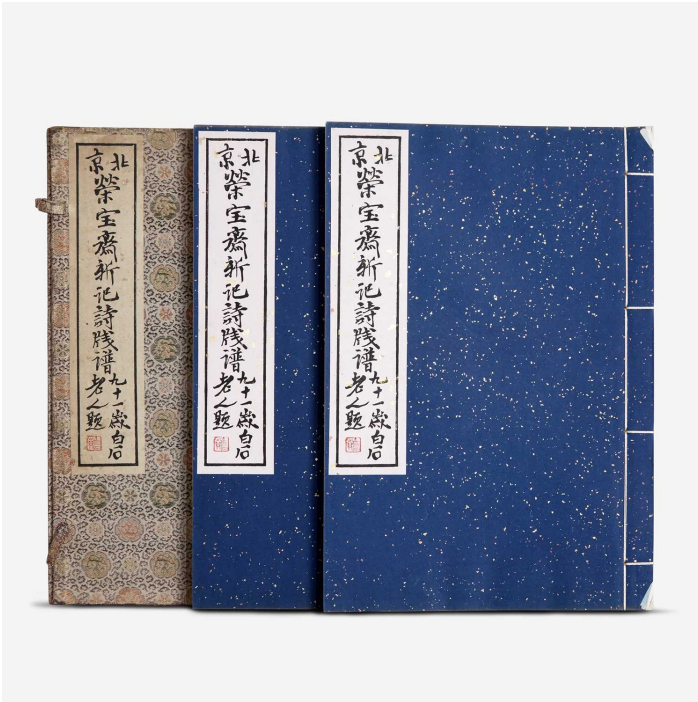 北京
榮宝齋新记詩牋谱
九十一歲白石
老人题
北京
榮宝齋新记詩牋谱
九十一歲白石
老人题
北京
榮宝齋新记詩牋谱
九十一歲白石
老人题